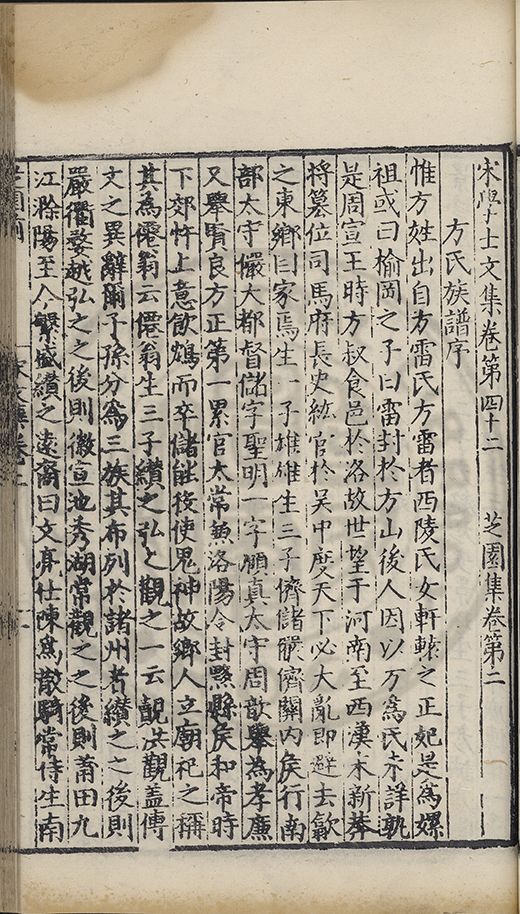 宋學士文集卷第四十二 芝園集卷第二
方氏族譜序
惟方姓出自方雷氏方雷者西陵氏女軒轅之正妃是為嫘
祖或曰榆岡之子曰雷封於方山後人因以方為氏未詳孰
是周宣王時方叔食邑於洛故世望于河南至西漢末新莽
將篡位司馬府長史紘官於吳中度天下必大亂即避去歙
之東鄉曰家焉生一子雄雄生三子儕儲儼儕關內侯行南
部太守儼大都督儲字聖明一字頤真太守周歆舉為孝廉
又舉賢良方正第一累官太常兼洛陽令封黟縣侯和帝時
下郊忤上意飲鴆而卒儲能役使鬼神故鄉人立廟祀之稱
其為僊翁云僊翁生三子纘之弘之觀之一云覿洪觀蓋傳
文之異辭爾子孫分為三族其布列於諸州者纘之之後則
嚴衢婺越弘之之後則徽宣池秀湖常觀之之後則莆田九
江滁陽至今繁盛纘之遠裔曰文亭仕陳為散騎常侍生南